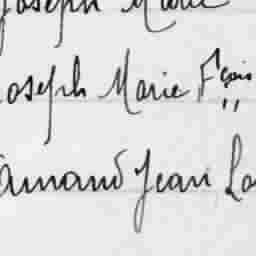 Joseph Marie
Joseph Marie Fçois
"
Armand Jean